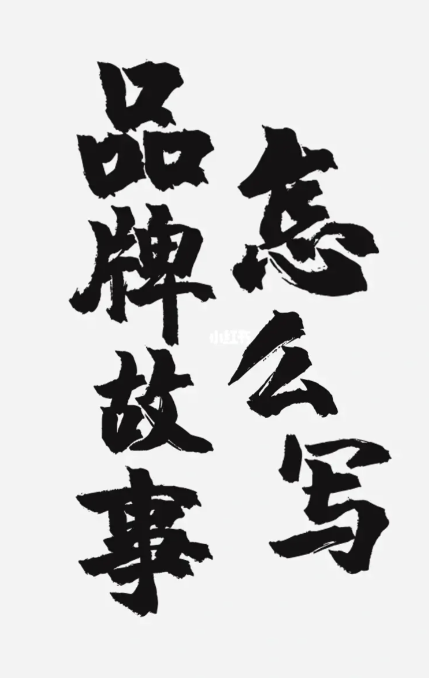 品牌故事
怎么写
小红书